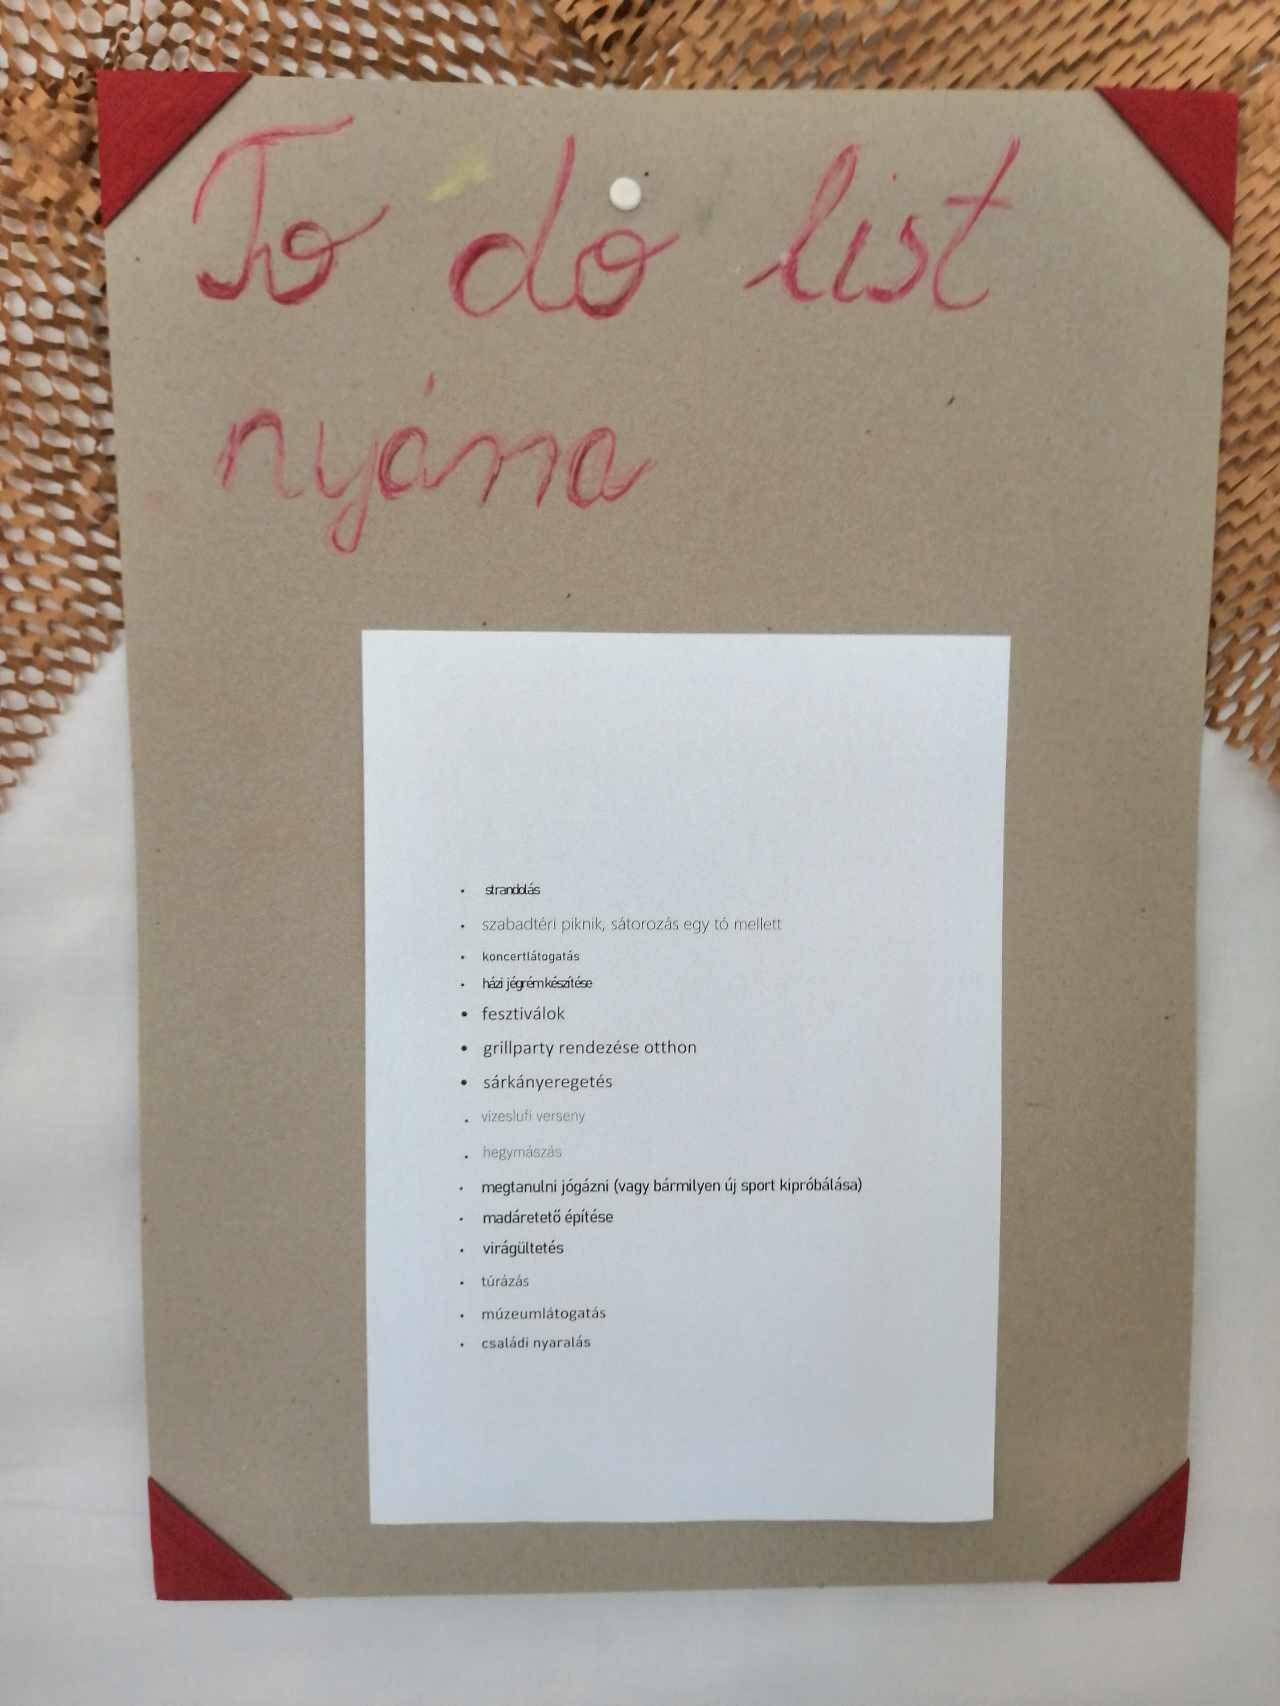 To do list
nyárra
• strandolás
• szabadtéri piknik, sátorozás egy tó mellett
• koncertlátogatás
• házi jégrém készítése
• fesztiválok
• grillparty rendezése otthon
• sárkányeregetés
• vizeslufi verseny
• hegymászás
• megtanulni jógázni (vagy bármilyen új sport kipróbálása)
• madáretető építése
• virágültetés
• túrázás
• múzeumlátogatás
• családi nyaralás